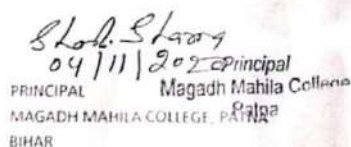 04/11/202
Principal
PRINCIPAL Magadh Mahila College
MAGADH MAHILA COLLEGE, PATNA Patna
BIHAR